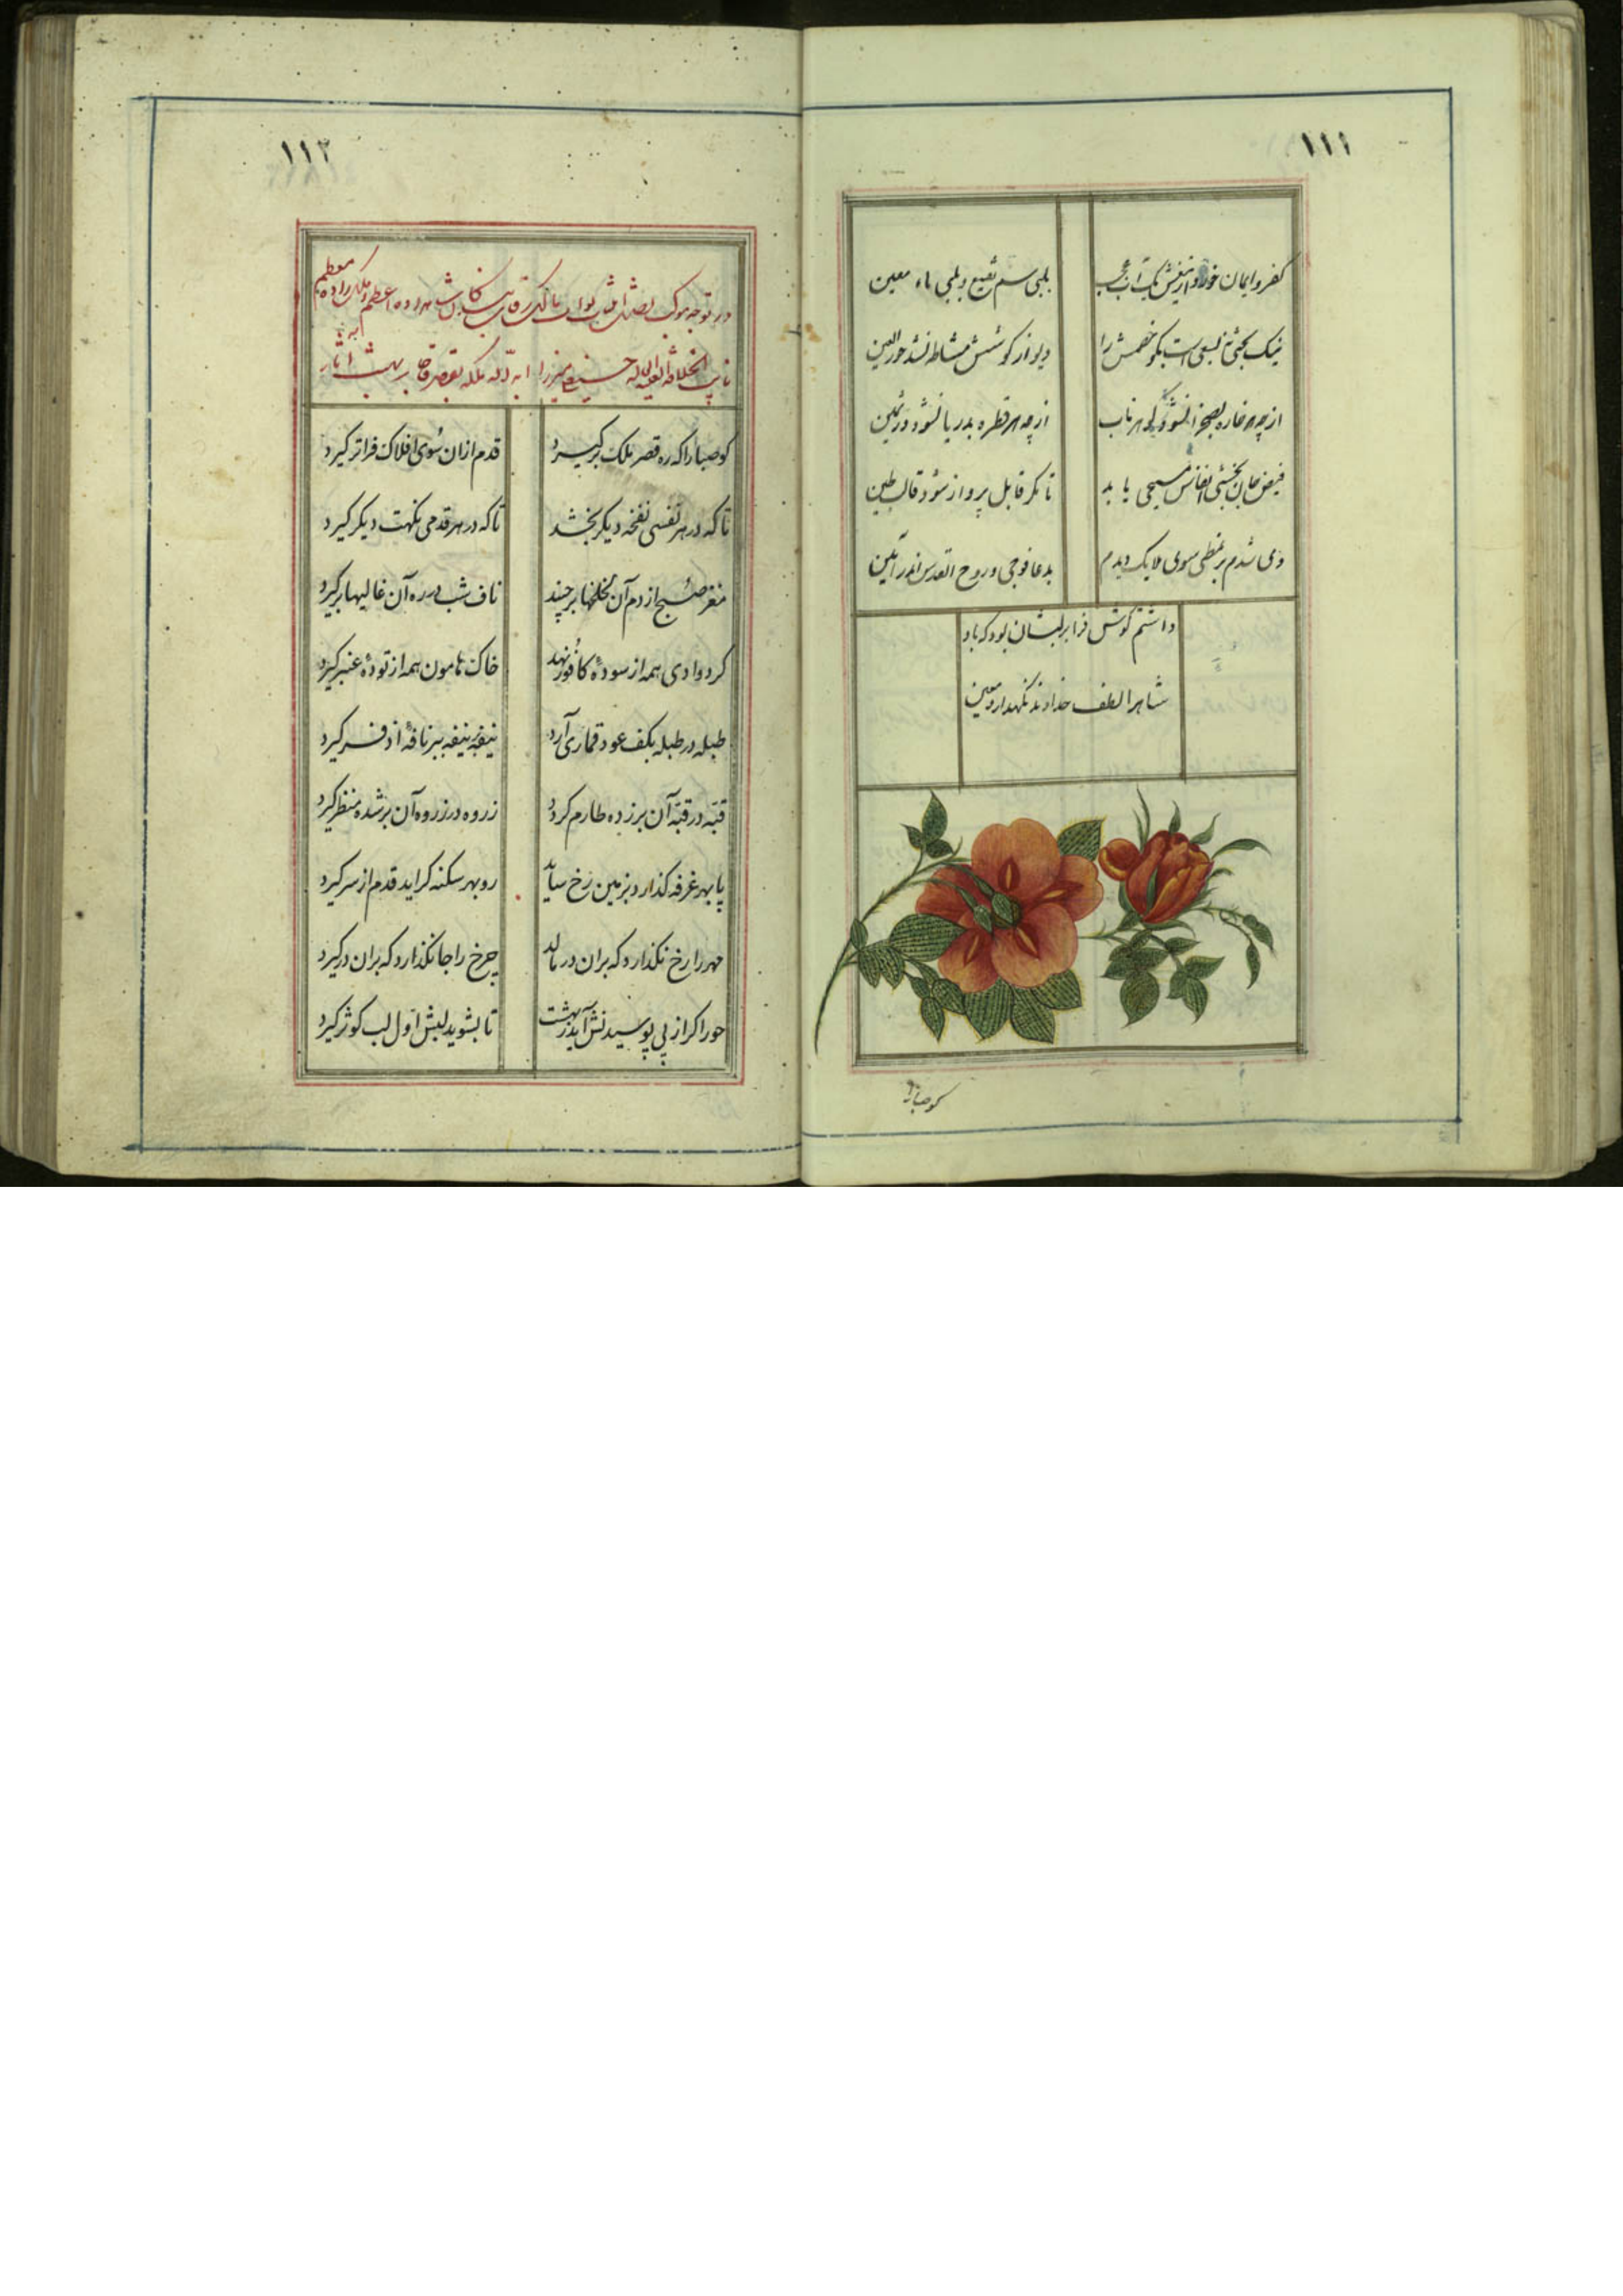 ١١١
کفر و ایمان خورد از تیغش یک آب عجب
بلبی سم نقیع و بلبی ماء معین
نیک بختی نه بسعی است بکو خصمش را
دیو از کوشش مشاطه نشد حور العین
از چه هر خاره بصحرا نشود کوهر ناب
از چه هر قطره بدریا نشود در ثمین
فیض جان بخشی انفاس مسیحی باید
تا مکر قابل پرواز شود قالب طین
دی شدم بر نمطی سوی ملایک دیدم
بدعا فوجی و روح القدس اندر آمین
داشتم کوش فرا بر لبشان بود که باد
شاهرا لطف خداوند نکهدار و معین
کو صبا را
١١٢
در توجه موکب شاهزاده اعظم و ملک زاده معظم
نایب الخلافة العلیه حسینعلی میرزا
کو صبا را که ره قصر ملک برکیرد
قدم از ان سوی افلاک فراتر کیرد
تا که در هر نفسی نفخه دیکر بخشد
تا که در هر قدمی نکهت دیکر کیرد
مغز صبح از دم آن لخلخها برچیند
ناف شب در ره آن غالیها برکیرد
کرد وادی همه از سودهٔ کافور نهد
خاک هامون همه از تودهٔ عنبر کیرد
طبله در طبله بکف عود قماری آرد
نیفه بر نیفه ببر نافهٔ اذفر کیرد
قبّه در قبّه آن بر زده طارم کردد
زروه در زروه آن بر شده منظر کیرد
پا بهر غرفه کذارد بزمین رخ ساید
رو بهر سکنه کراید قدم از سر کیرد
مهر را رخ نکذارد که بران در مالد
چرخ را جا نکذارد که بران در کیرد
حور اکر از پی بوسیدنش آید ز بهشت
تا بشوید لبش اول لب کوثر کیرد